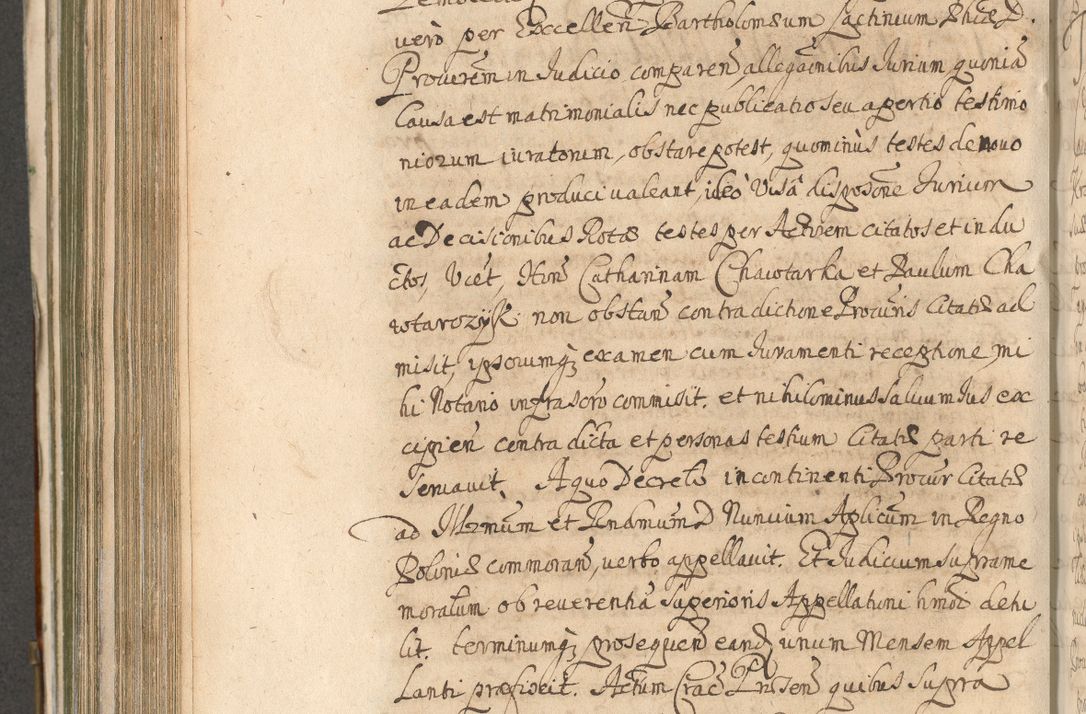 vero per Excellen Bartholomæum Lactinium Phiæ D.
Procurem in Judicio comparen, allegaonibus Jurium, quonia
Causa est matrimonialis nec publicatio seu apertio testimo
niorum iuratorum, obstare potest, quominùs testes de novo
in eadem produci valeant, ideò visâ disposone Jurium
ac Decisionibus Rotæ testes per Actrem citatos et indu
ctos, vict, Hon Catharinam Chawtarka et Paulum Cha
wtarozyk non obstan contradictione Procuris Citatæ ad
misit, ipsorumq; examen cum Juramenti receptione, mi
hi Notario infrascro commisit. et nihilominus Salvum Jus ex
cipien contra dicta et personas testium Citatæ parti re
servavit. A quo Decreto incontinenti Procur Citatæ
ad Illrmum et Rndmum D Nuncium Aplicum in Regno
Poloniæ commoran, verbo appellavit. Et Judicium suprame
moratum ob reverentia Superioris Appellationi hmoi detu
lit. terminumq; prosequen eand, unum Mensem Appel
lanti præfixit. Actum Crac Præsen quibus supra